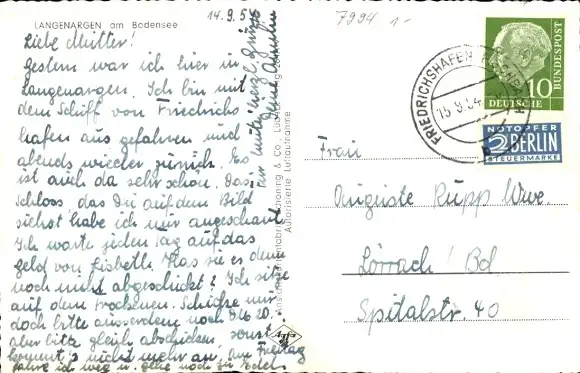 LANGENARGEN am Bodensee
14.9.5
7994 1-
Liebe Mutter!
Gestern war ich hier in
Langenargen. Ich bin mit
dem Schiff von Friedrichs
hafen aus gefahren und
abends wieder zurück. Es
ist auch da sehr schön. Das
Schloss das Du auf dem Bild
siehst habe ich mir angeschaut
Ich warte jeden Tag auf das
Geld von Lisbeth. Has sie es denn
noch nicht abgeschickt? Ich sitze
auf dem Trockenen. Schicke mir
doch bitte ausserdem noch DM 20.-
aber bitte gleich abschicken, sonst
kommt's nicht mehr an. Am Freitag
fahre ich weg u. gehe noch zu
Für heute herzl. Grüsse
Schöning & Co., Lübeck
Autorisierte Luftaufnahme
Agfa
FRIEDRICHSHAFEN
15.9.54
DEUTSCHE
BUNDESPOST
10
NOTOPFER
2 BERLIN
STEUERMARKE
Frau
Auguste Rupp Wwe.
Lörrach / Bd
Spitalstr. 40